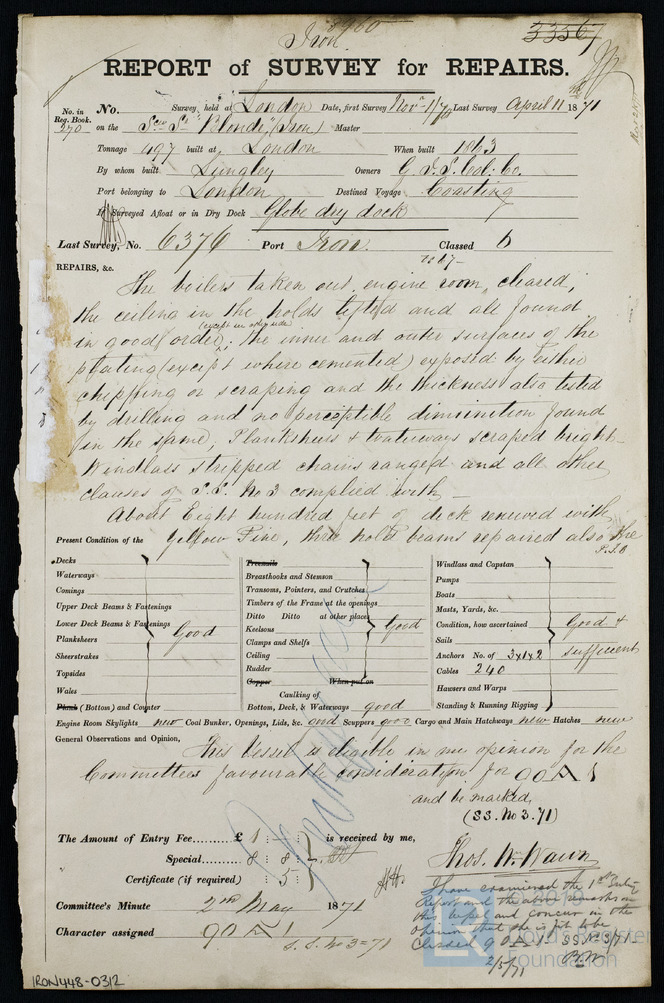 Iron
33567
REPORT of SURVEY for REPAIRS.
No. in Reg. Book. 270
No. Survey held at London Date, first Survey Novr 1/70 Last Survey April 11th 1871
on the Scw Sr "Blonde", (Iron) Master
Tonnage 497 built at London When built 1863
By whom built Lungley Owners G. I. S. Col. Co.
Port belonging to London Destined Voyage Coasting
If Surveyed Afloat or in Dry Dock Globe dry dock
Last Survey, No. 6376 Port Iron. Classed 6
REPAIRS, &c.
The boilers taken out, engine room, cleared,
the ceiling in the holds lifted and all found
in good order (except in only side); the inner and outer surfaces of the
plating (except where cemented) exposed by either
chipping or scraping and the thickness also tested
by drilling and no perceptible diminution found
in the same, Planksheers & Waterways scraped bright
Windlass stripped chains ranged and all other
clauses of S.S. No 3 complied with –
About Eight hundred feet of deck renewed with
Yellow Pine, three hold beams repaired also the
P.T.O
Present Condition of the
Decks
Waterways
Comings
Upper Deck Beams & Fastenings
Lower Deck Beams & Fastenings
Planksheers
Sheerstrakes
Topsides
Wales
Plank (Bottom) and Counter
Good
Treenails
Breasthooks and Stemson
Transoms, Pointers, and Crutches
Timbers of the Frame at the openings
Ditto Ditto at other places
Keelsons
Clamps and Shelfs
Ceiling
Rudder
Copper When put on
Good
Caulking of
Bottom, Deck, & Waterways good
Windlass and Capstan
Pumps
Boats
Masts, Yards, &c.
Condition, how ascertained
Sails
Anchors No. of 3x1x2
Cables 240
Hawsers and Warps
Standing & Running Rigging
Good & sufficient
Engine Room Skylights new Coal Bunker, Openings, Lids, &c. and Scuppers good Cargo and Main Hatchways new Hatches new
General Observations and Opinion,
This Vessel is eligible in my opinion for the
Committees favourable consideration for 90 A 1
and be marked,
(SS. No 3. 71)
The Amount of Entry Fee.......... £ 1 : : is received by me,
Special.......... 8 : 8 :
Certificate (if required) : 5 :
Thos. Wm Wawn
Committee's Minute 2nd May 1871
Character assigned 90 A 1
S.S. No 3=71
I have examined the 1st Entry
Report and the above remarks on
this vessel and concur in the
opinion that she is fit to be
Classed 90 A 1. SS No 3/71
2/5/71
Lloyd's Register
Foundation
IRON448-0312